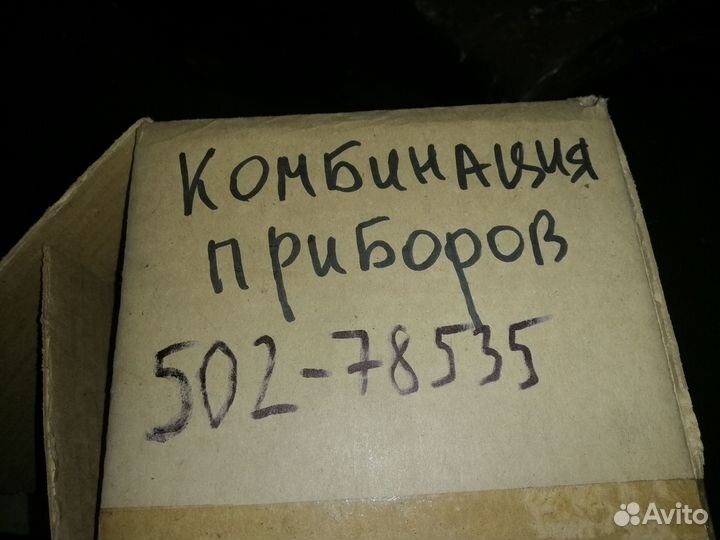 КОМБИНАЦИЯ
ПРИБОРОВ
502-78535
Avito